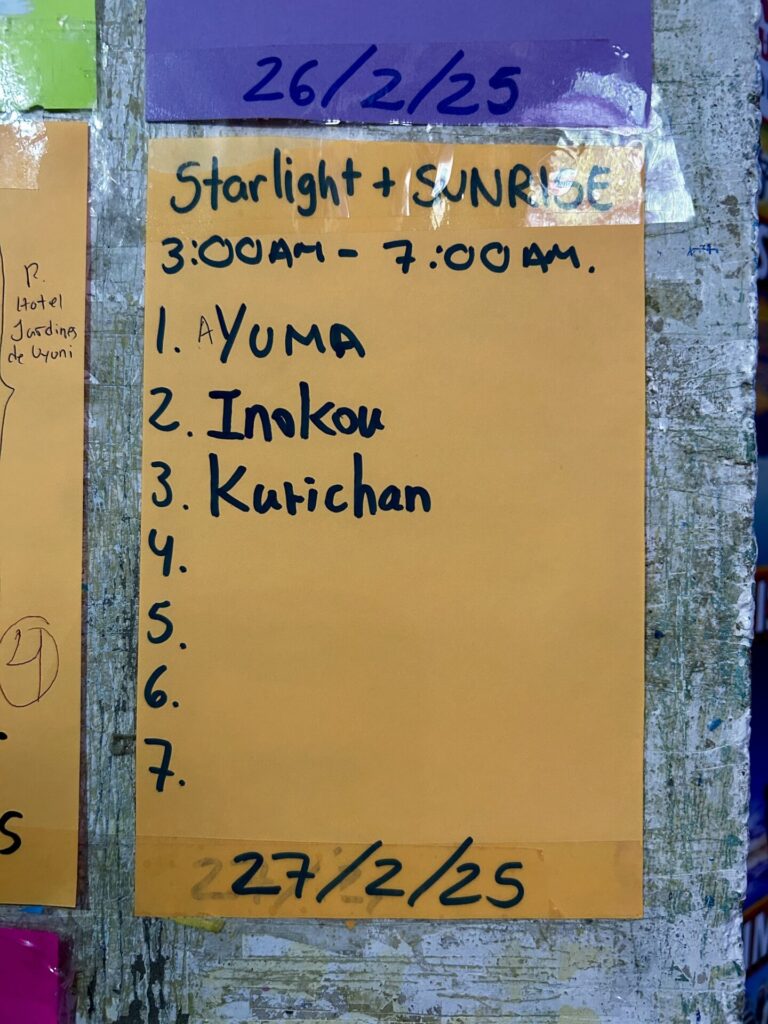 26/2/25
Starlight + SUNRISE
3:00AM - 7:00AM.
1. AYUMA
2. Inokou
3. Kurichan
4.
5.
6.
7.
27/2/25
P.
Hotel
Jardines
de Uyuni
4
S